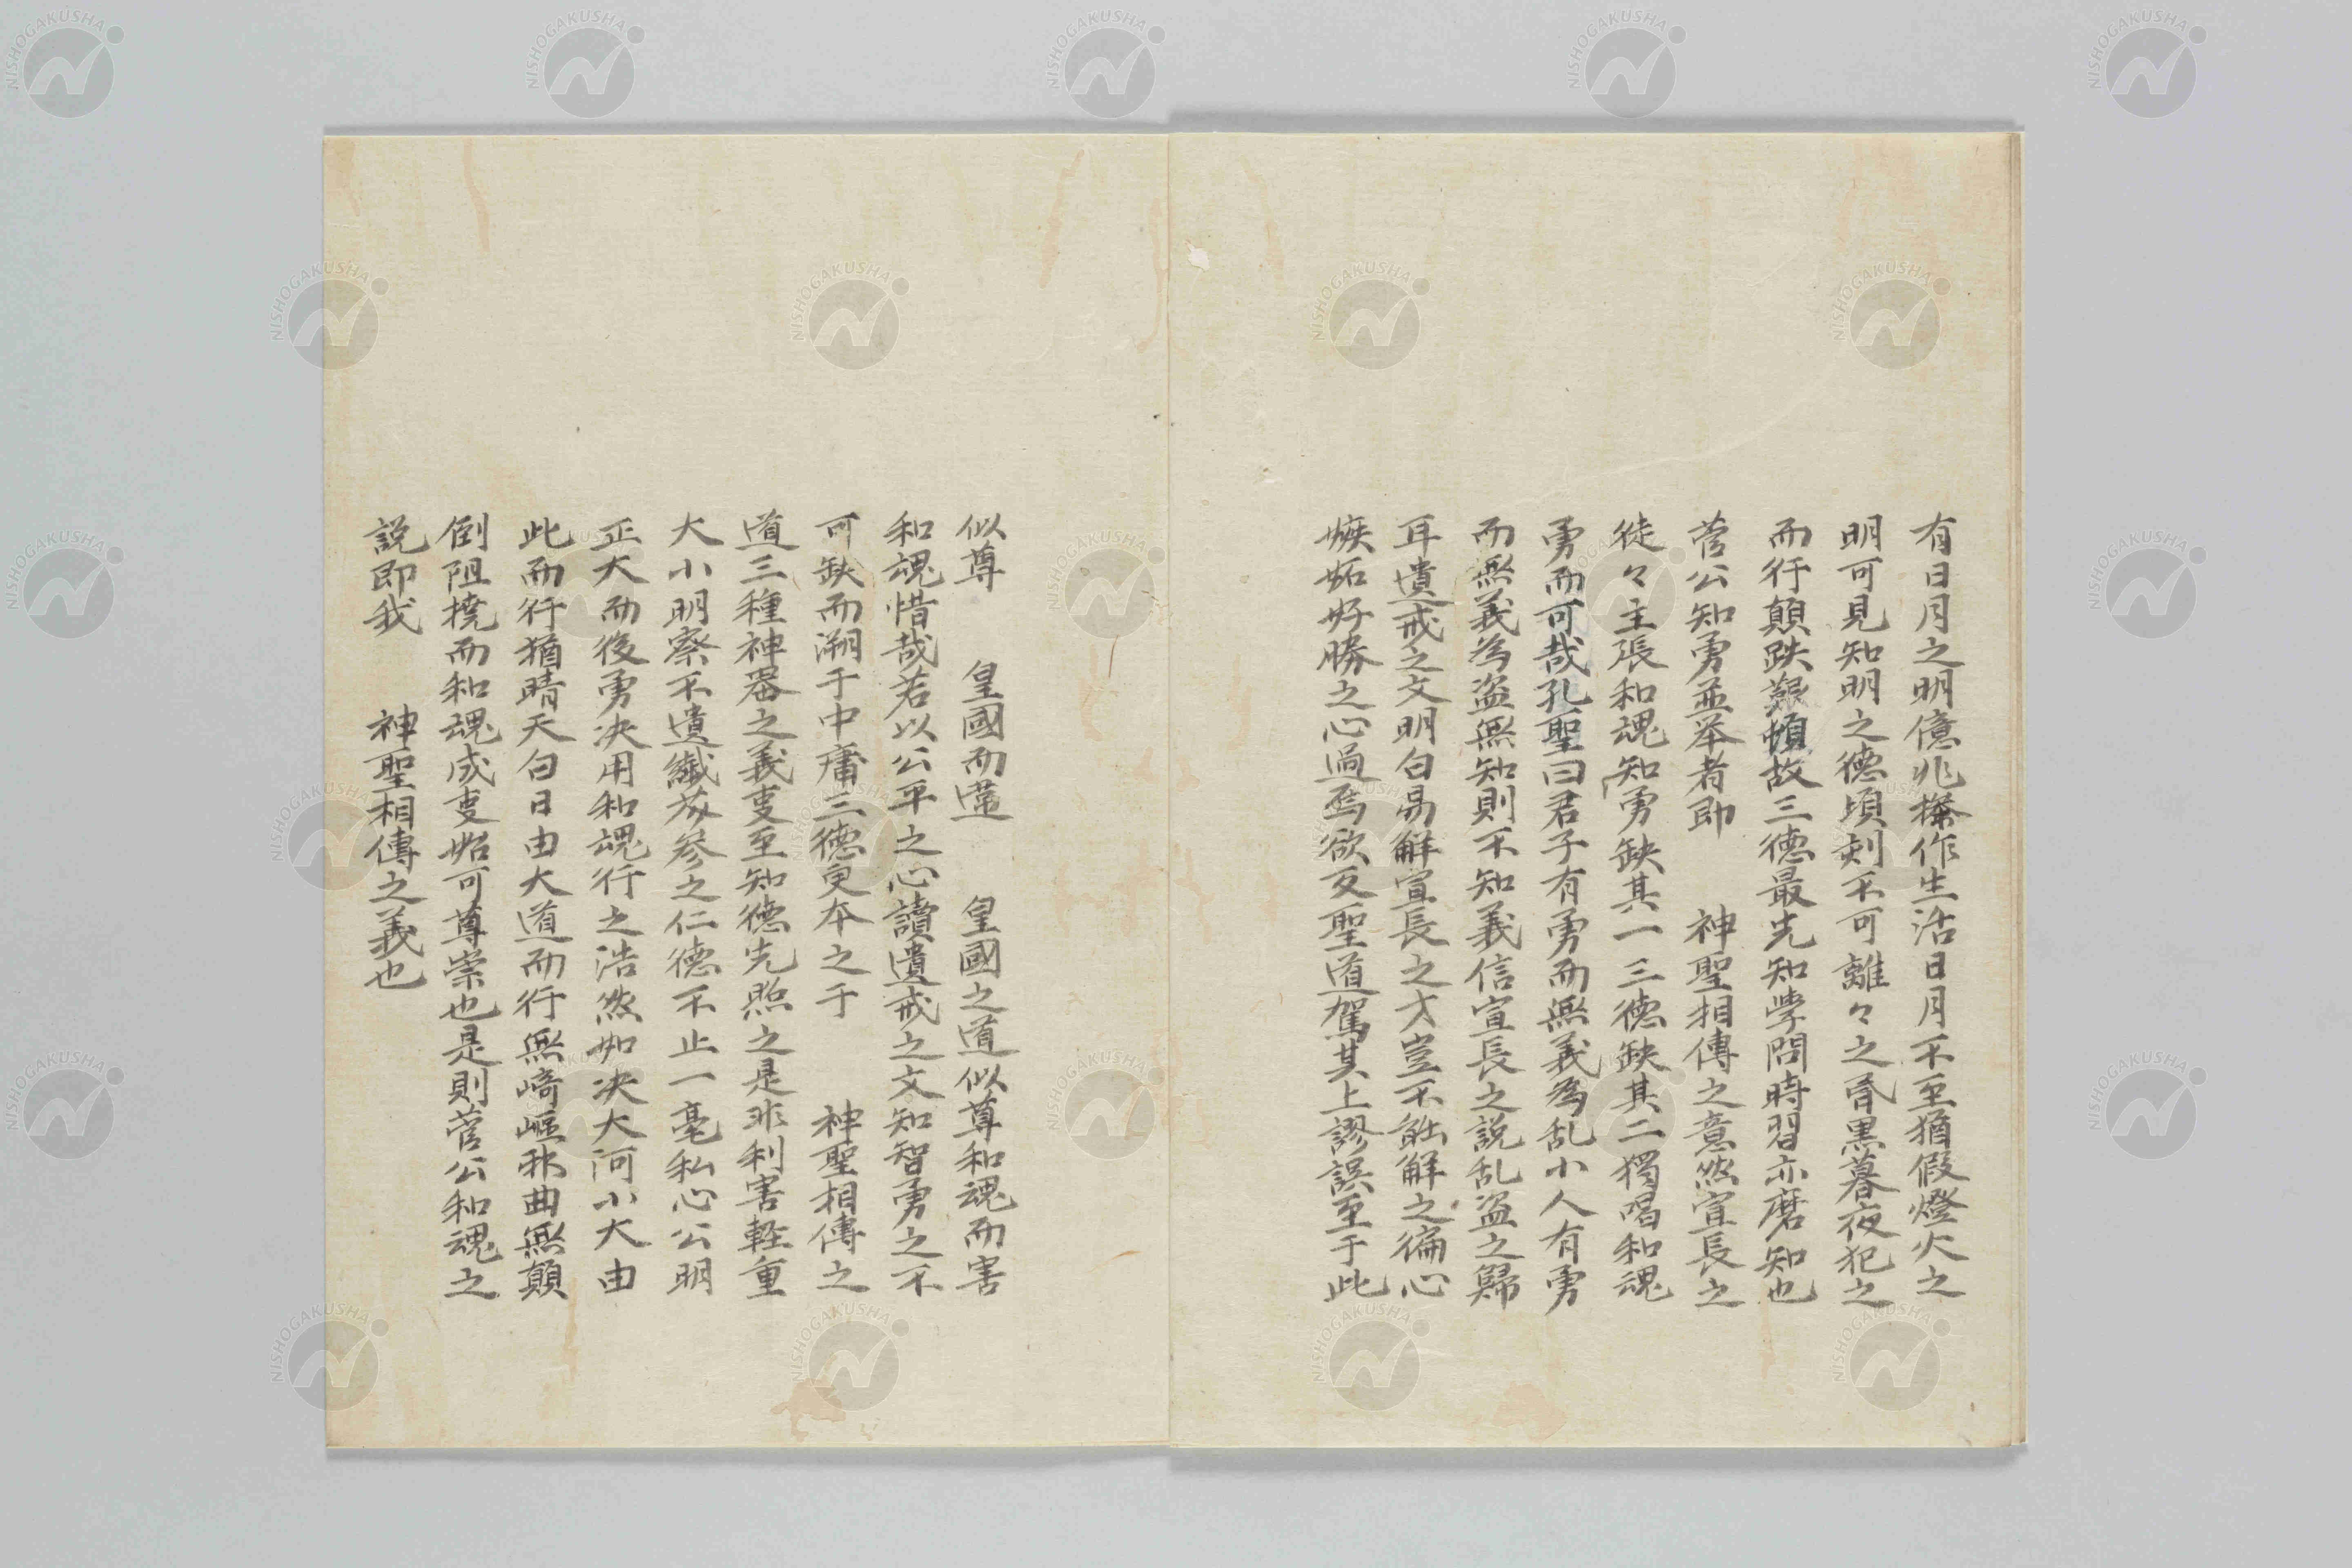 有日月之明億兆操作生活日月不至猶假燈火之
明可見知明之德頃刻不可離々之昏黒暮夜犯之
而行顛跌艱頓故三德最先知学問時習亦磨知也
菅公知勇並举者即　神聖相傳之意然宣長之
徒々主張和魂知勇缺其一三德缺其二獨唱和魂
勇而可哉孔聖曰君子有勇而無義為乱小人有勇
而無義為盗無知則不知義信宣長之説乱盗之歸
耳遺戒之文明白易解宣長之才豈不能解之徧心
嫉妬好勝之心過焉欲反聖道駕其上謬誤至于此
似尊　皇國而蔑　皇國之道似尊和魂而害
和魂惜哉若以公平之心讀遺戒之文知智勇之不
可缺而溯于中庸三德更本之于　神聖相傳之
道三種神器之義重至知德先照之是非利害軽重
大小明察不遺纎芥参之仁德不止一毫私心公明
正大而後勇决用和魂行之浩然如决大河小大由
此而行猶晴天白日由大道而行無崎嶇邪曲無顛
倒阻撓而和魂成重始可尊崇也是則菅公和魂之
説即我　神聖相傳之義也
NISHOGAKUSHA